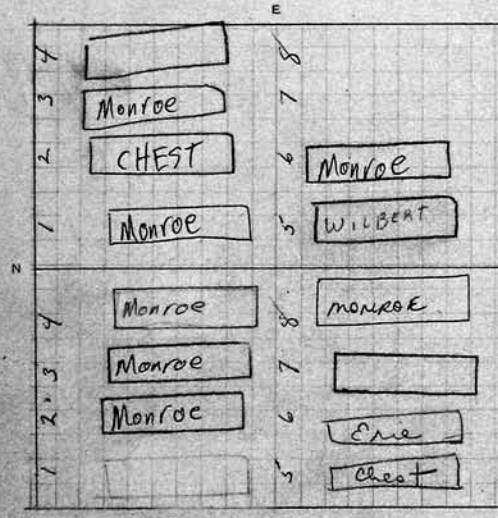 E
4 8
3 Monroe 7
2 CHEST 6 Monroe
1 Monroe 5 WILBERT
N
4 Monroe 8 MONROE
3 Monroe 7
2 Monroe 6 Erie
1 5 Chest